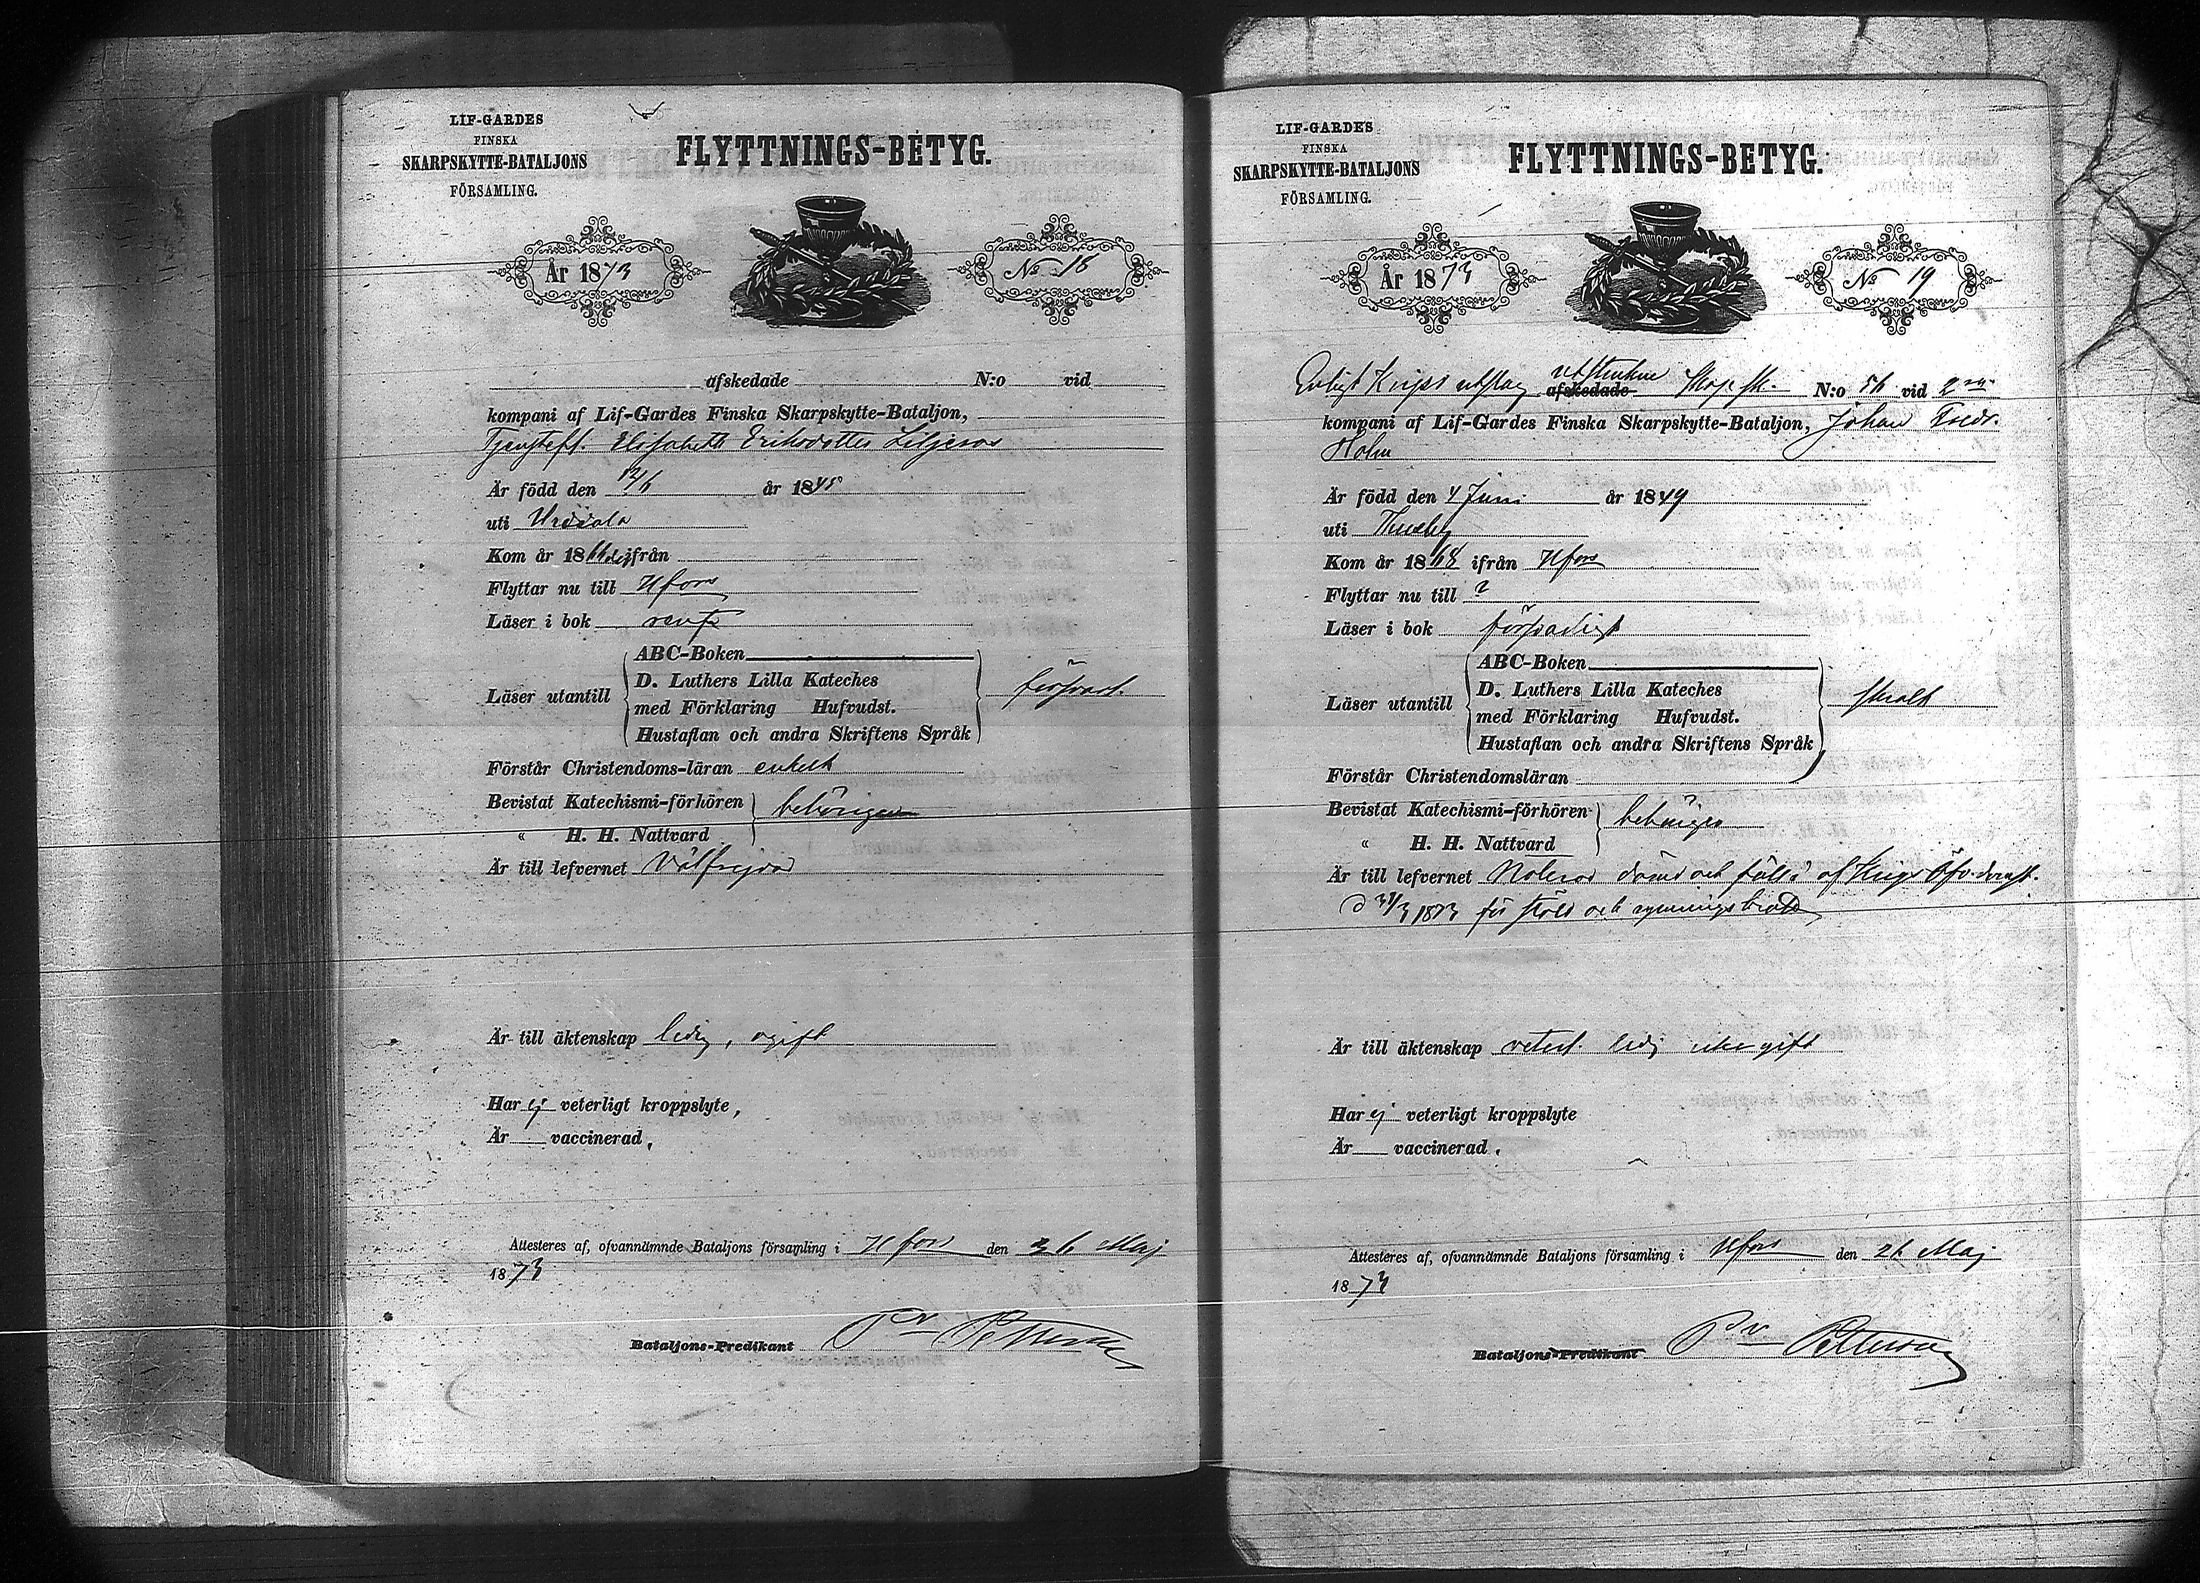 LIF-GARDES
FINSKA
SKARPSKYTTE-BATALJONS
FÖRSAMLING.
FLYTTNINGS-BETYG.
År 1873
No 18
afskedade N:o vid
kompani af Lif-Gardes Finska Skarpskytte-Bataljon,
Elisabeth Eriksdotter Liljeros
Är född den 12/6 år 1845
uti Urdiala
Kom år 1866 ifrån
Flyttar nu till Hfors
Läser i bok rent
ABC-Boken
D. Luthers Lilla Kateches
Läser utantill med Förklaring Hufvudst. försvarl.
Hustaflan och andra Skriftens Språk
Förstår Christendoms-läran enkelt
Bevistat Katechismi-förhören behörigen
" H. H. Nattvard
Är till lefvernet Välfrejdad
Är till äktenskap ledig, ogift
Har ej veterligt kroppslyte,
Är vaccinerad,
Attesteres af, ofvannämnde Bataljons församling i Hfors den 26 Maj
1873
Bataljons-Predikant
LIF-GARDES
FINSKA
SKARPSKYTTE-BATALJONS
FÖRSAMLING.
FLYTTNINGS-BETYG.
År 1873
No 19
utstrukne
Enligt Krigs utslag afskedade Skarpsk. N:o 56 vid 2dra
kompani af Lif-Gardes Finska Skarpskytte-Bataljon, Johan Fredr.
Holm
Är född den 4 Juni år 1849
uti Thusby
Kom år 1868 ifrån Hfors
Flyttar nu till ?
Läser i bok försvarligt
ABC-Boken
D. Luthers Lilla Kateches
Läser utantill med Förklaring Hufvudst. skralt
Hustaflan och andra Skriftens Språk
Förstår Christendomsläran
Bevistat Katechismi-förhören behörigen
" H. H. Nattvard
Är till lefvernet Noterad dömd och fälld af Krigs Öfv. domst.
d 31/3 1873 för stöld och rymningsbrott
Är till äktenskap veterl. ledig icke gift
Har ej veterligt kroppslyte
Är vaccinerad.
Attesteres af, ofvannämnde Bataljons församling i Hfors den 26 Maj
1873
Bataljons-Predikant